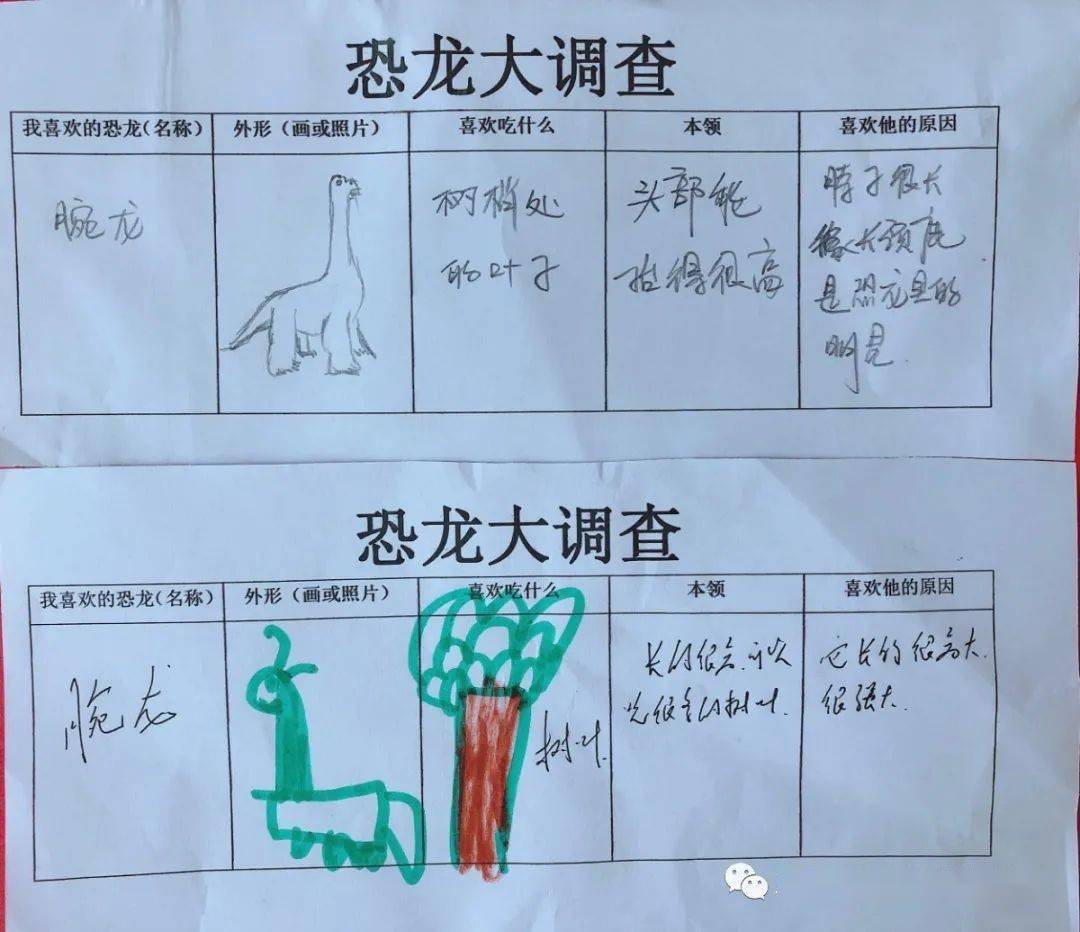 恐龙大调查
我喜欢的恐龙(名称) 外形（画或照片） 喜欢吃什么 本领 喜欢他的原因
腕龙
树梢处
的叶子
头部能
抬得很高
脖子很长
像长颈鹿
是恐龙里的
明星.
恐龙大调查
我喜欢的恐龙(名称) 外形（画或照片） 喜欢吃什么 本领 喜欢他的原因
腕龙
树叶.
长的很高.可以
吃很高的树叶.
它长的很高大.
很强大.